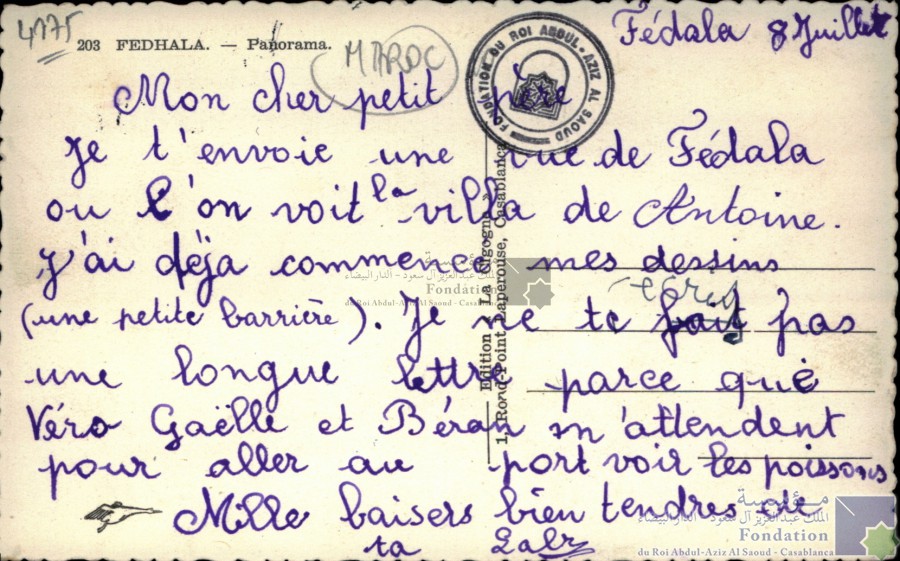 4175
203 FEDHALA. — Panorama.
MAROC
Fédala 8 Juillet
FONDATION DU ROI ABDUL-AZIZ AL SAOUD
Mon cher petit père
Je t'envoie une vue de Fédala
ou l'on voit la villa de Antoine.
J'ai déja commencé mes dessins
(une petite barrière). Je ne te fait écris pas
une longue lettre parce que
Véro Gaëlle et Béran m'attendent
pour aller au port voir les poissons
Mille baisers bien tendres de
ta
Edition « La Cigogne »
1, Rond-Point Laperouse, Casablanca
مؤسسة
الملك عبد العزيز آل سعود - الدار البيضاء
Fondation
du Roi Abdul-Aziz Al Saoud - Casablanca